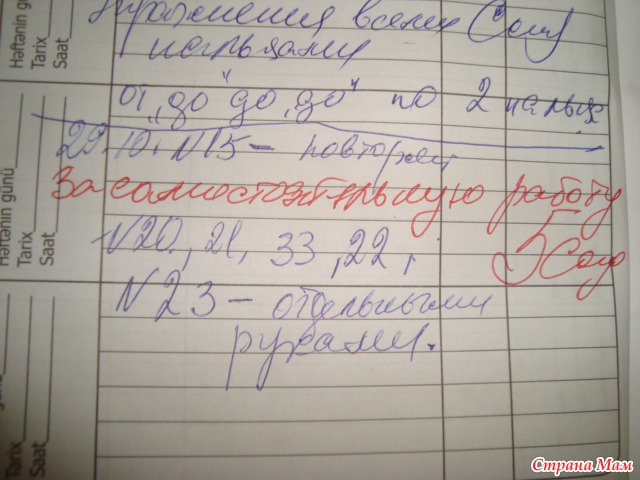 Həftənin günü
Tarix
Saat
Упражнения всеми
пальцами
от „до" до „до" по 2 пальца
29.10. N15 – повторять
За самостоятельную работу
N20, 21, 33, 22,
5
N23 – отдельными
руками.
Həftənin günü
Tarix
Saat
Tarix
Saat
Страна Мам